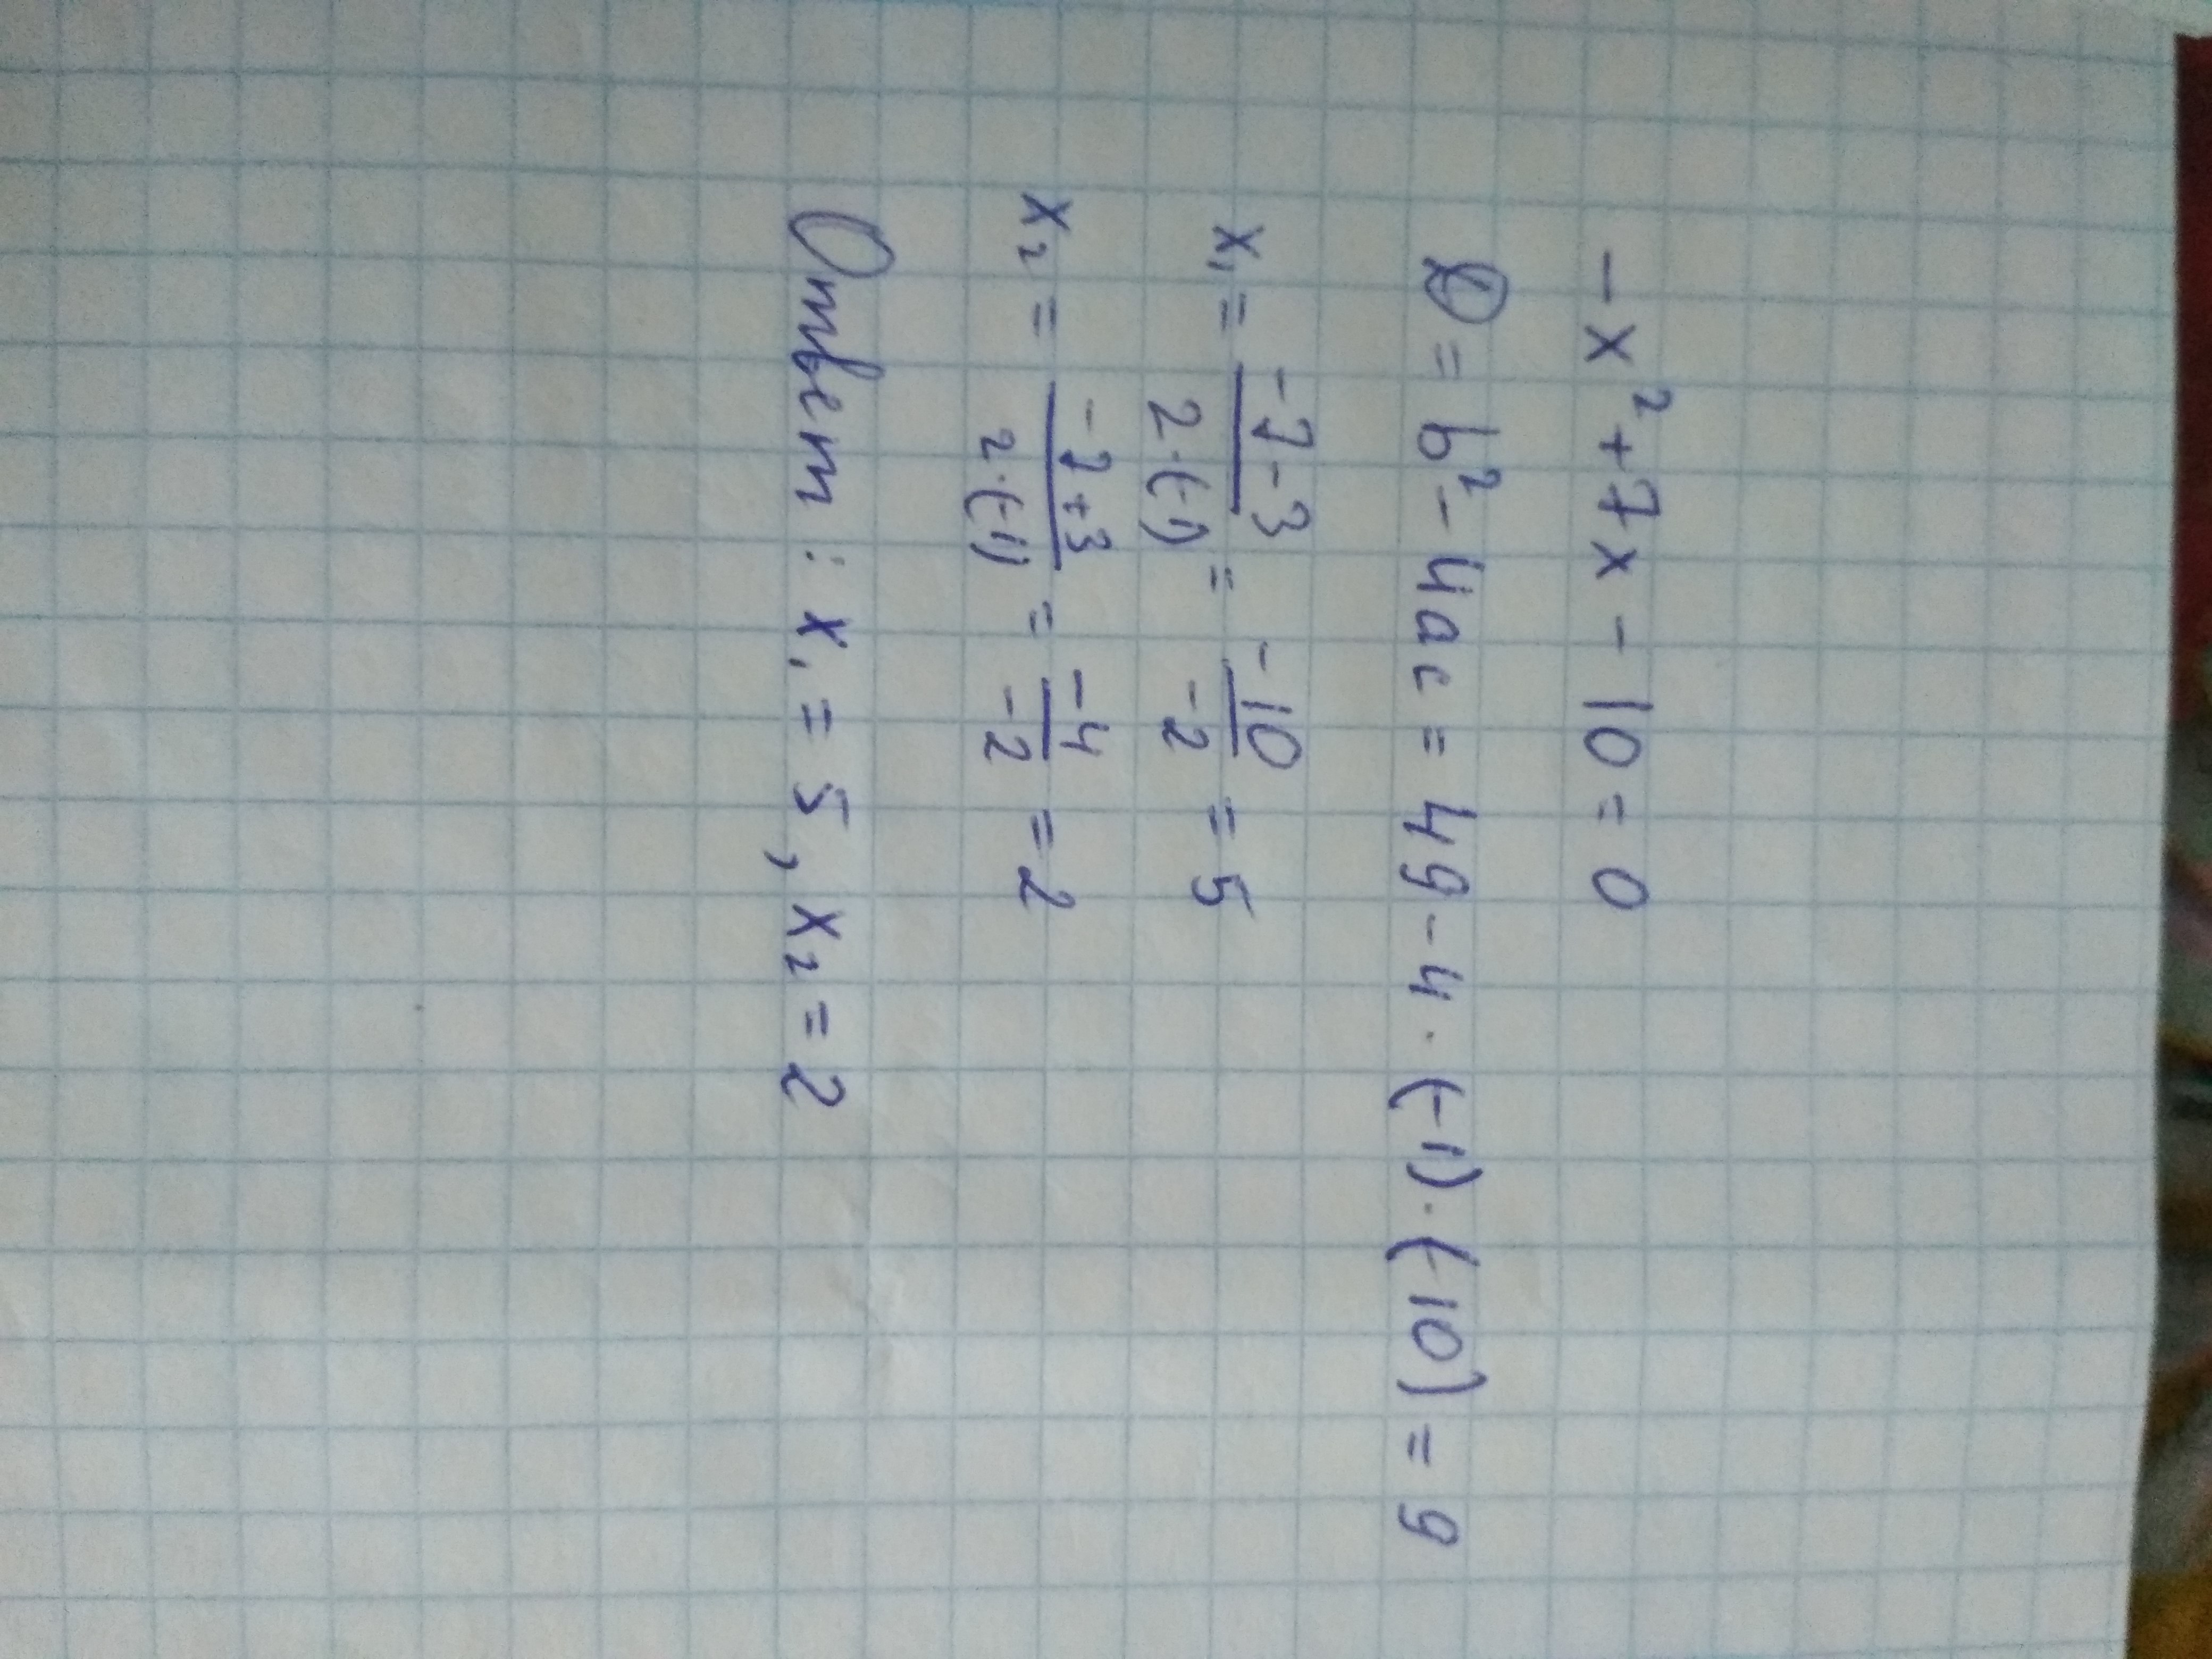 -x² + 7x - 10 = 0
D = b² - 4ac = 49 - 4 · (-1) · (-10) = 9
x₁ = (-7-3)/(2·(-1)) = -10/-2 = 5
x₂ = (-7+3)/(2·(-1)) = -4/-2 = 2
Ответ : x₁ = 5, x₂ = 2